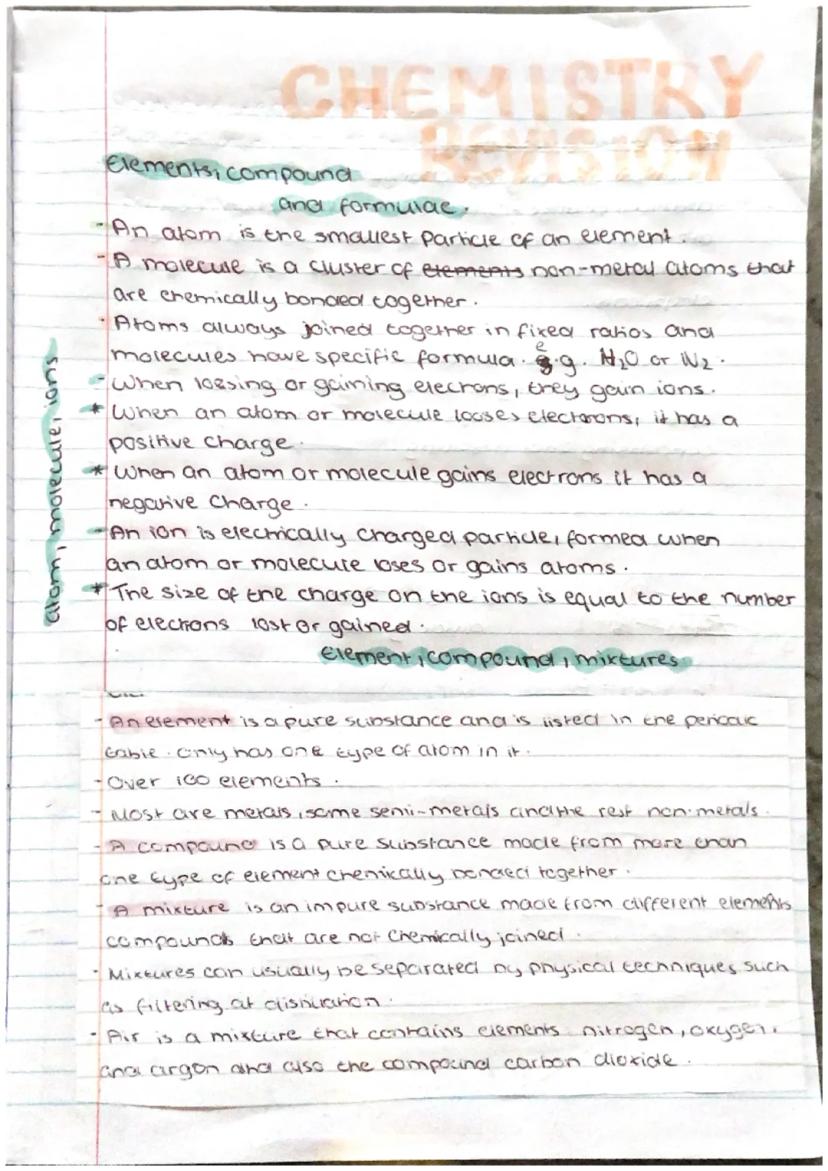 CHEMISTRY
REVISION
Elements, compound
and formulae.
- An atom is the smallest particle of an element.
- A molecule is a cluster of elements non-metal atoms that
are chemically bonded together.
- Atoms always joined together in fixed ratios and
molecules have specific formula. e.g. H₂O or N₂.
- When loesing or gaining elecrons, they gain ions.
* When an atom or molecule looses electrons, it has a
positive charge.
* When an atom or molecule gains electrons it has a
negative charge.
- An ion is electrically charged particle, formed when
an atom or molecule loses or gains atoms.
* The size of the charge on the ions is equal to the number
of electrons lost or gained.
atom, molecule, ions
Element, compound, mixtures
- An element is a pure substance and is listed in the periodic
table. Only has one type of atom in it.
- Over 100 elements.
- Most are metals, some semi-metals and the rest non-metals.
- A compound is a pure substance made from more than
one type of element chemically bonded together.
- A mixture is an impure substance made from different elements
compounds that are not chemically joined.
- Mixtures can usually be separated by physical techniques such
as filtering at distillation.
- Air is a mixture that contains elements nitrogen, oxygen,
and argon and also the compound carbon dioxide.